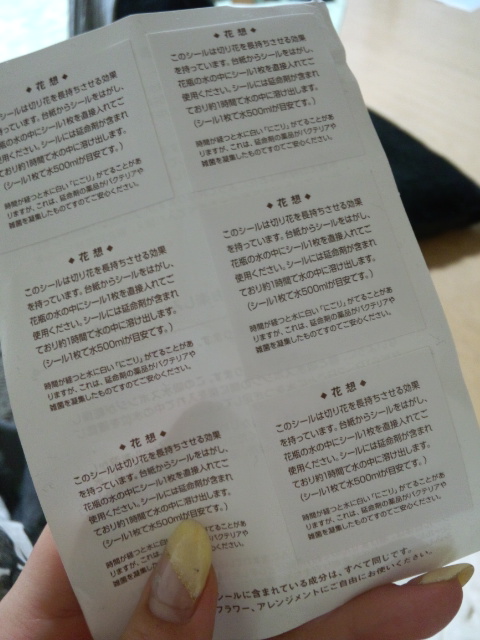 ◆ 花 想 ◆
シールは切り花を長持ちさせる効果
っています。台紙からシールをはがし、
の水の中にシール1枚を直接入れてご
用ください。シールには延命剤が含まれ
おり約1時間で水の中に溶け出します。
(シール1枚で水500mlが目安です。)
時間が経つと水に白い「にごり」がでることがあ
りますが、これは、延命剤の薬品がバクテリアや
雑菌を凝集したものですのでご安心ください。
◆ 花 想 ◆
このシールは切り花を長持ちさせる効果
を持っています。台紙からシールをはがし、
花瓶の水の中にシール1枚を直接入れてご
使用ください。シールには延命剤が含まれ
ており約1時間で水の中に溶け出します。
(シール1枚で水500mlが目安です。)
時間が経つと水に白い「にごり」がでることがあ
りますが、これは、延命剤の薬品がバクテリアや
雑菌を凝集したものですのでご安心ください。
◆ 花 想 ◆
このシールは切り花を長持ちさせる効果
を持っています。台紙からシールをはがし、
花瓶の水の中にシール1枚を直接入れてご
使用ください。シールには延命剤が含まれ
ており約1時間で水の中に溶け出します。
(シール1枚で水500mlが目安です。)
時間が経つと水に白い「にごり」がでることがあ
りますが、これは、延命剤の薬品がバクテリアや
雑菌を凝集したものですのでご安心ください。
◆ 花 想 ◆
このシールは切り花を長持ちさせる効果
を持っています。台紙からシールをはがし、
花瓶の水の中にシール1枚を直接入れてご
使用ください。シールには延命剤が含まれ
ており約1時間で水の中に溶け出します。
(シール1枚で水500mlが目安です。)
時間が経つと水に白い「にごり」がでることがあ
りますが、これは、延命剤の薬品がバクテリアや
雑菌を凝集したものですのでご安心ください。
◆ 花 想 ◆
このシールは切り花を長持ちさせる効果
を持っています。台紙からシールをはがし、
花瓶の水の中にシール1枚を直接入れてご
使用ください。シールには延命剤が含まれ
ており約1時間で水の中に溶け出します。
(シール1枚で水500mlが目安です。)
時間が経つと水に白 ることがあ
りますが、これは、 テリアや
雑菌を凝集した
◆ 花 想 ◆
このシールは切り花を長持ちさせる効果
を持っています。台紙からシールをはがし、
花瓶の水の中にシール1枚を直接入れてご
使用ください。シールには延命剤が含まれ
ており約1時間で水の中に溶け出します。
(シール1枚で水500mlが目安です。)
時間が経つと水に白い「にごり」がでることがあ
りますが、これは、延命剤の薬品がバクテリアや
雑菌を凝集したものですのでご安心ください。
シールに含まれている成分は、すべて同じです。
フラワー、アレンジメントにご自由にお使いください。